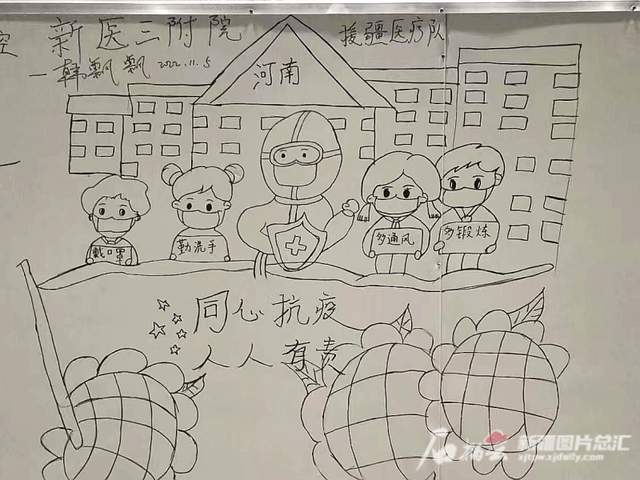 新医三附院
援疆医疗队
一韩飘飘 2022.11.5
河南
戴口罩
勤洗手
多通风
多锻炼
同心抗疫
人人有责
石榴云
新疆图片总汇
xjtzw.xjdaily.com